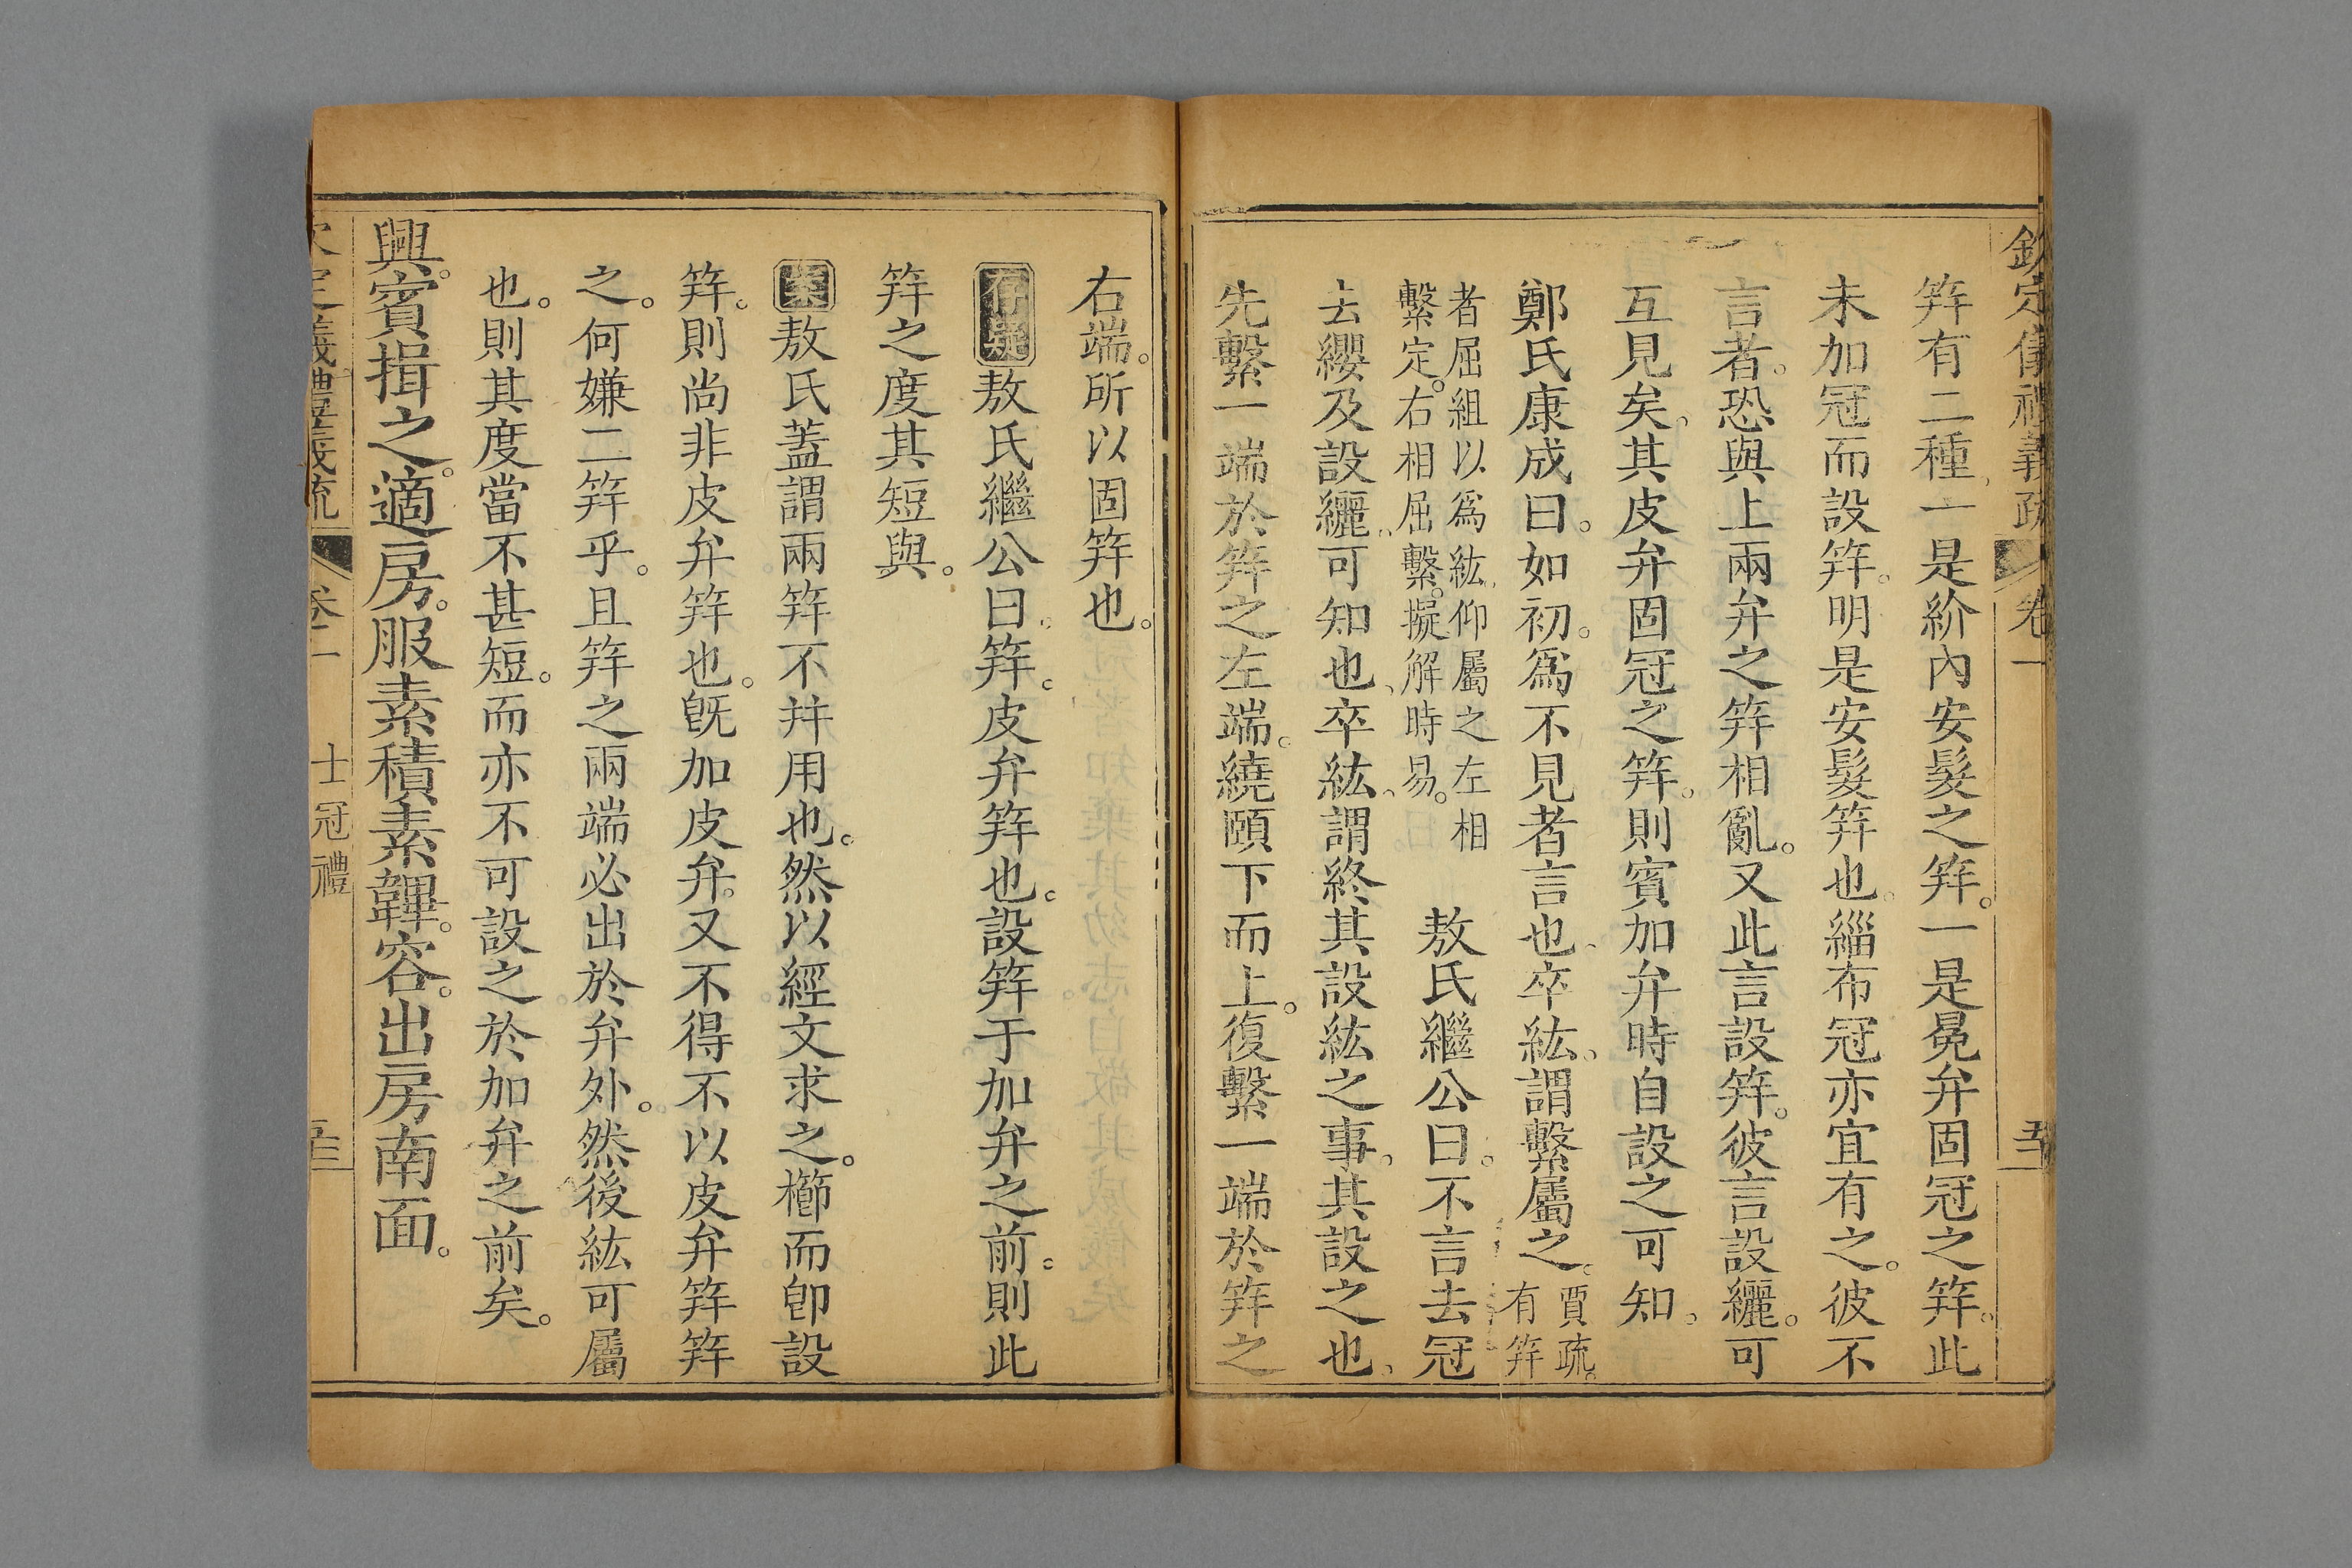 欽定儀禮義疏 卷一 至
筓有二種、一是紒內安髮之筓。一是冕弁固冠之筓。此
未加冠而設筓。明是安髮筓也。緇布冠亦宜有之。彼不
言者。恐與上兩弁之筓相亂。又此言設筓。彼言設纚。可
互見矣。其皮弁固冠之筓。則賓加弁時自設之可知。
鄭氏康成曰。如初。爲不見者言也、卒紘。謂繫屬之。賈疏。有筓
者屈組以爲紘、仰屬之左相
繫定。右相屈繫。擬解時易。
敖氏繼公曰。不言去冠
去纓及設纚、可知也、卒紘、謂終其設紘之事。其設之也、
先繫一端於筓之左端。繞頤下而上。復繫一端於筓之
右端。所以固筓也。
存疑敖氏繼公曰、筓。皮弁筓也。設筓于加弁之前。則此
筓之度其短與。
案敖氏蓋謂兩筓不幷用也。然以經文求之。櫛而卽設
筓。則尚非皮弁筓也。旣加皮弁。又不得不以皮弁筓筓
之。何嫌二筓乎。且筓之兩端必出於弁外。然後紘可屬
也。則其度當不甚短。而亦不可設之於加弁之前矣。
興。賓揖之。適房。服素積素韠。容。出房南面。
士冠禮